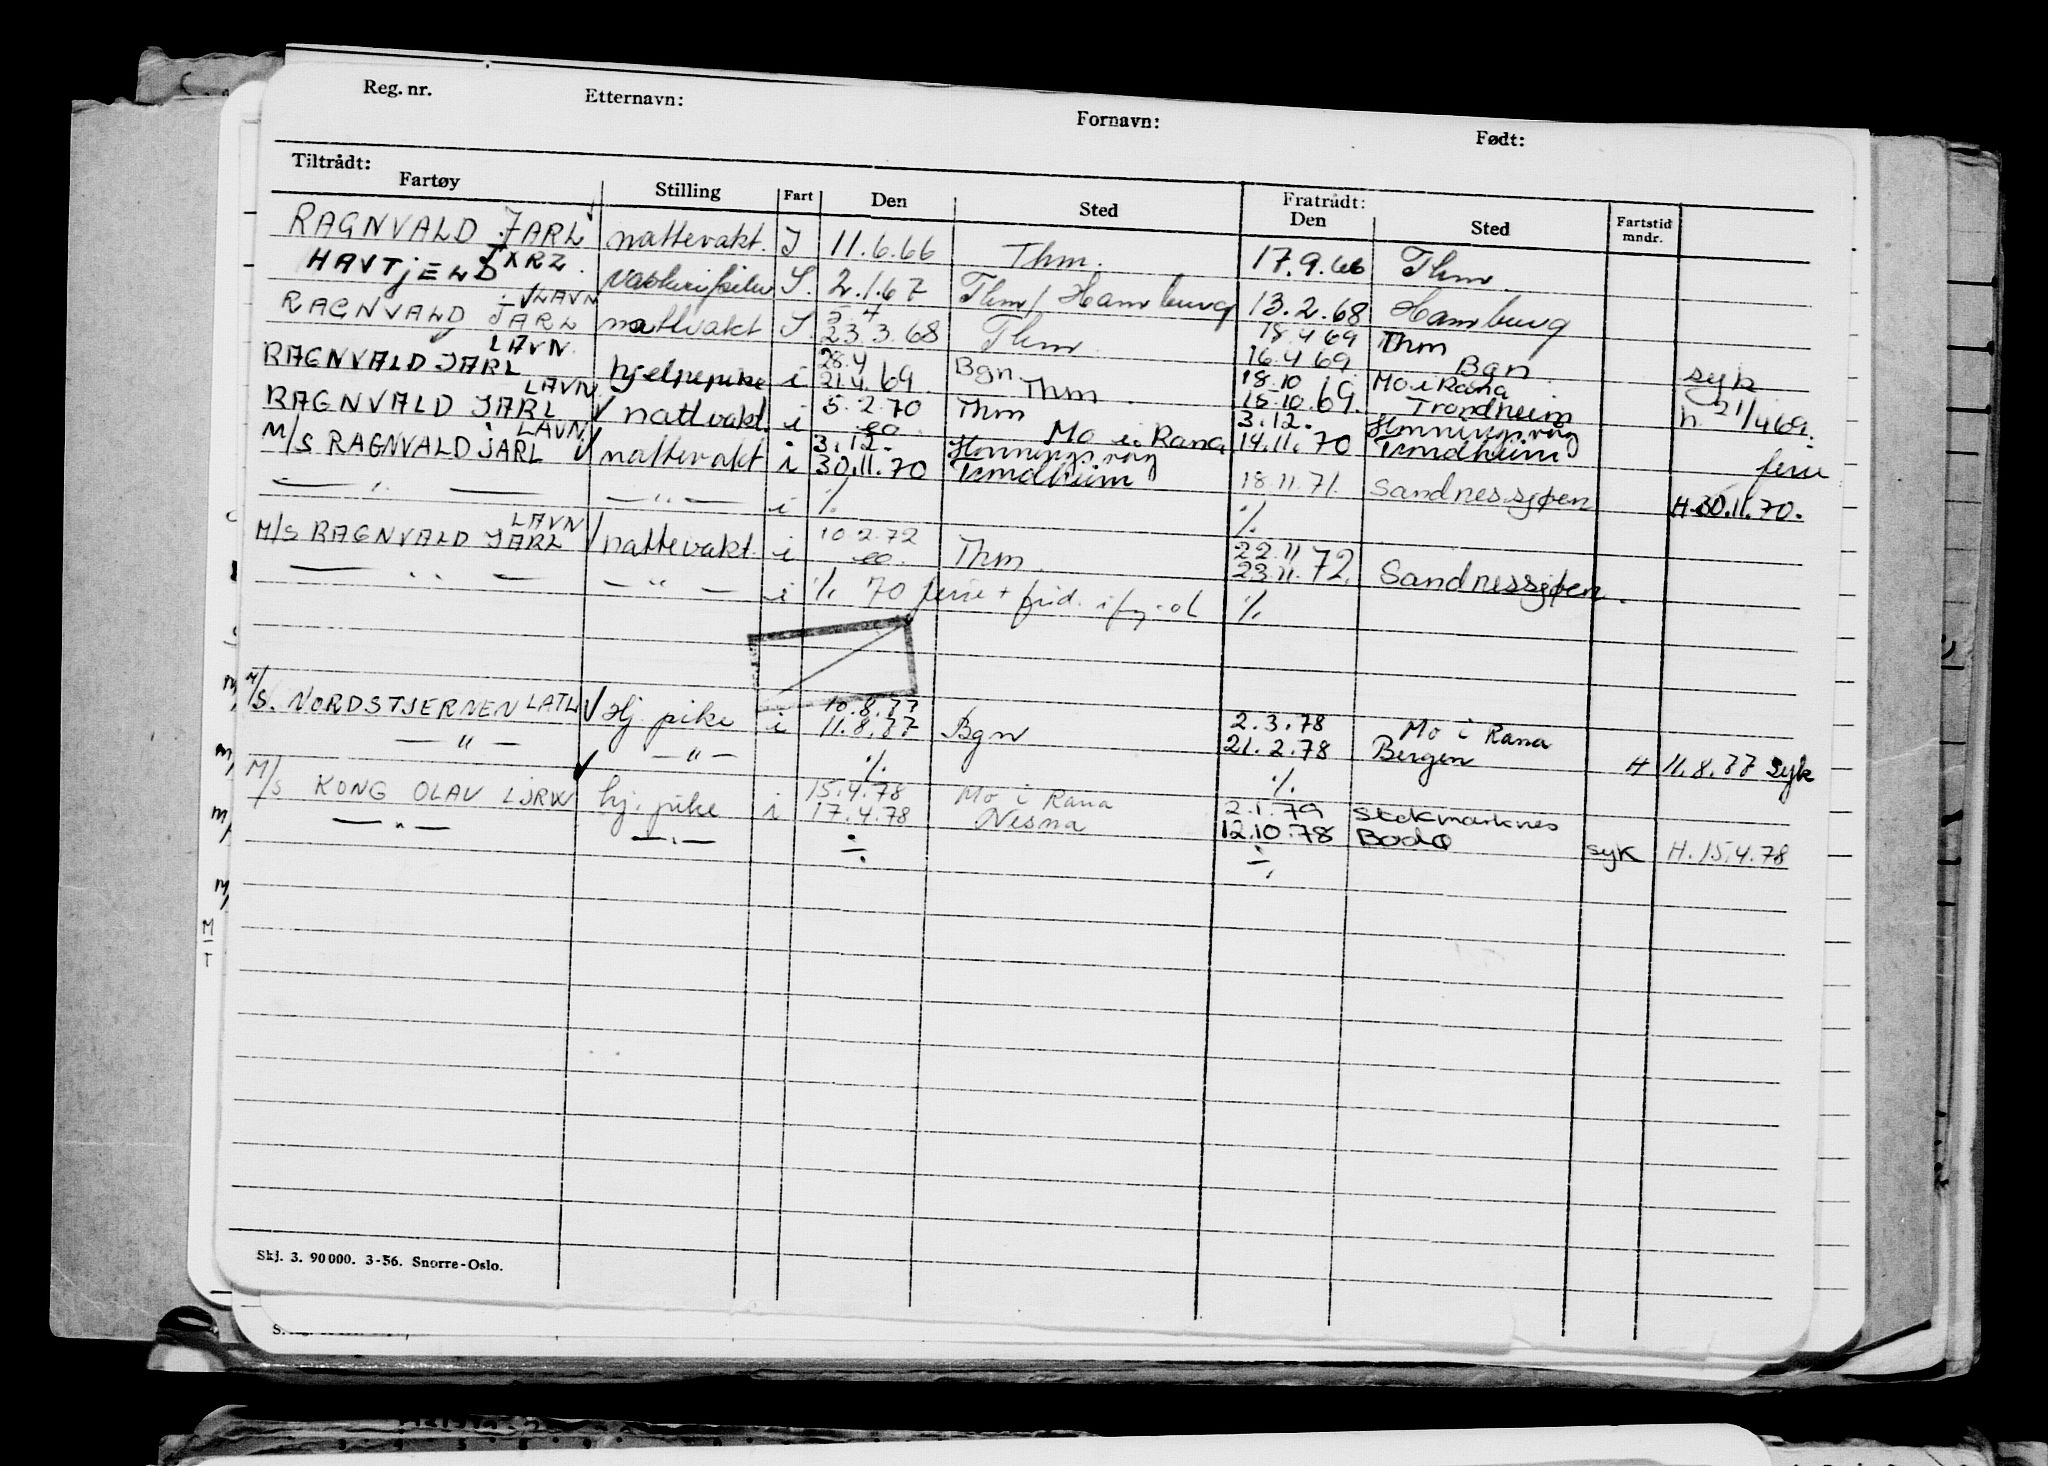 Reg. nr. Etternavn: Fornavn: Født:
Tiltrådt: Fratrådt:
Fartøy Stilling Fart Den Sted Den Sted Fartstid mndr.
RAGNVALD JARL nattevakt. I 11.6.66 Thm. 17.9.66 Thm.
JXRZ
HAVTJELD S. 2.1.67 Thm/Hamburg 13.2.68 Hamburg
LAVN 3.4 18.4 69 Thm
RAGNVALD JARL nattvakt I 23.3.68 Thm. 16.4 69. Bgn. syk
LAVN. 28.4 Bgn 18.10 Mo i Rana
RAGNVALD JARL hjelpepike i 21.4.69. Thm. 18.10.69. Trondheim h. 21/4 69.
LAVN 5.2.70 Thm 3.12. Honningsvåg
RAGNVALD JARL nattvakt. i Mo i Rana 14.11.70 Trondheim ferie
LAVN. 3.12. Honningsvåg
M/S RAGNVALD JARL nattevakt i 30.11.70 Trondheim 18.11.71. Sandnessjøen H. 30.11.70.
— " — — " — i ./. ./.
LAVN 10.2.72 22.11
M/S RAGNVALD JARL nattevakt. i Thm. 23.11.72. Sandnessjøen.
— " — — " — i ./. 70 ferie + frid. i ./.
10.8.77 2.3.78 Mo i Rana
M/S. NORDSTJERNEN LATU Hj. pike i 11.8.77 Bgn 21.2.78 Bergen H 11.8.77 syk
— " — — " — ./. ./.
15.4.78 Mo i Rana 2.1.79 Stokmarknes
M/S KONG OLAV LJRW hj. pike i 17.4.78 Nesna 12.10.78 Bodø syk H. 15.4.78
— " — — " — ./. ./.
Skj. 3. 90 000. 3-56. Snorre-Oslo.